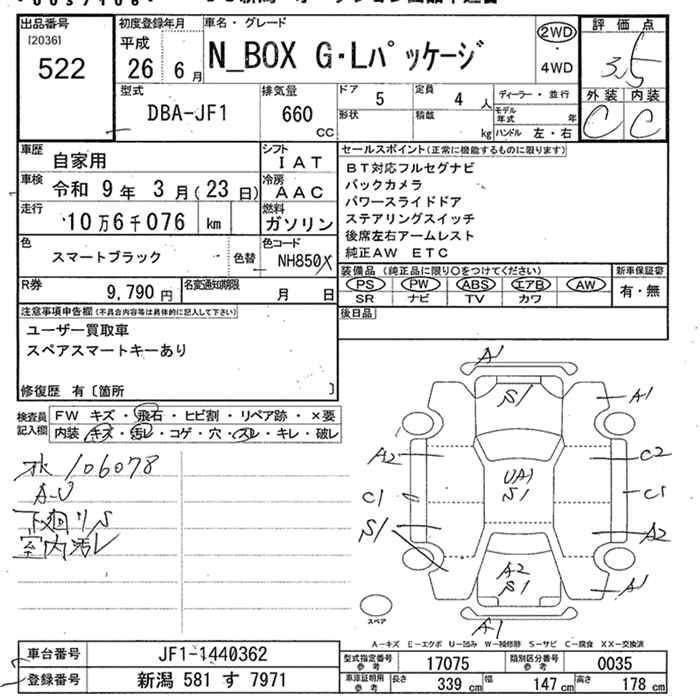 出品番号
[2036]
522
初度登録年月
平成
26年 6月
車名・グレード
N_BOX G・Lパッケージ
2WD
・
4WD
評価点
3.5
外装 内装
C C
型式
DBA-JF1
排気量
660 CC
ドア 5
定員 4 人
形状
積載 kg
ディーラー・並行
モデル年式 年
ハンドル 左・右
車歴 自家用
車検 令和 9年 3月(23日)
走行 10万6千076 km
シフト IAT
冷房 AAC
燃料 ガソリン
色 スマートブラック
色替
色コード NH850X
R券 9,790円
名変通知期限 月 日
セールスポイント(正常に機能するものに限ります)
BT対応フルセグナビ
バックカメラ
パワースライドドア
ステアリングスイッチ
後席左右アームレスト
純正AW ETC
装備品(純正品に限り○をつけてください)
PS PW ABS エアB AW
SR ナビ TV カワ
新車保証書
有・無
後日品
注意事項申告欄(不具合内容等は具体的に記入して下さい)
ユーザー買取車
スペアスマートキーあり
修復歴 有〔箇所 〕
検査員記入欄
FW キズ・飛石・ヒビ割・リペア跡・×要
内装 キズ・汚レ・コゲ・穴・スレ・キレ・破レ
106078
A-U
下廻りS
室内汚レ
A1
S1
A1
A2
C2
UA1
S1
C1
C1
S1
A2
A2
S1
A1
A1
スペア
A-キズ E-エクボ U-凹み W-補修跡 S-サビ C-腐食 XX-交換済
車台番号 JF1-1440362
登録番号 新潟 581 す 7971
型式指定番号 参考 17075
類別区分番号 参考 0035
車庫証明用 参考
長さ 339 cm
幅 147 cm
高さ 178 cm